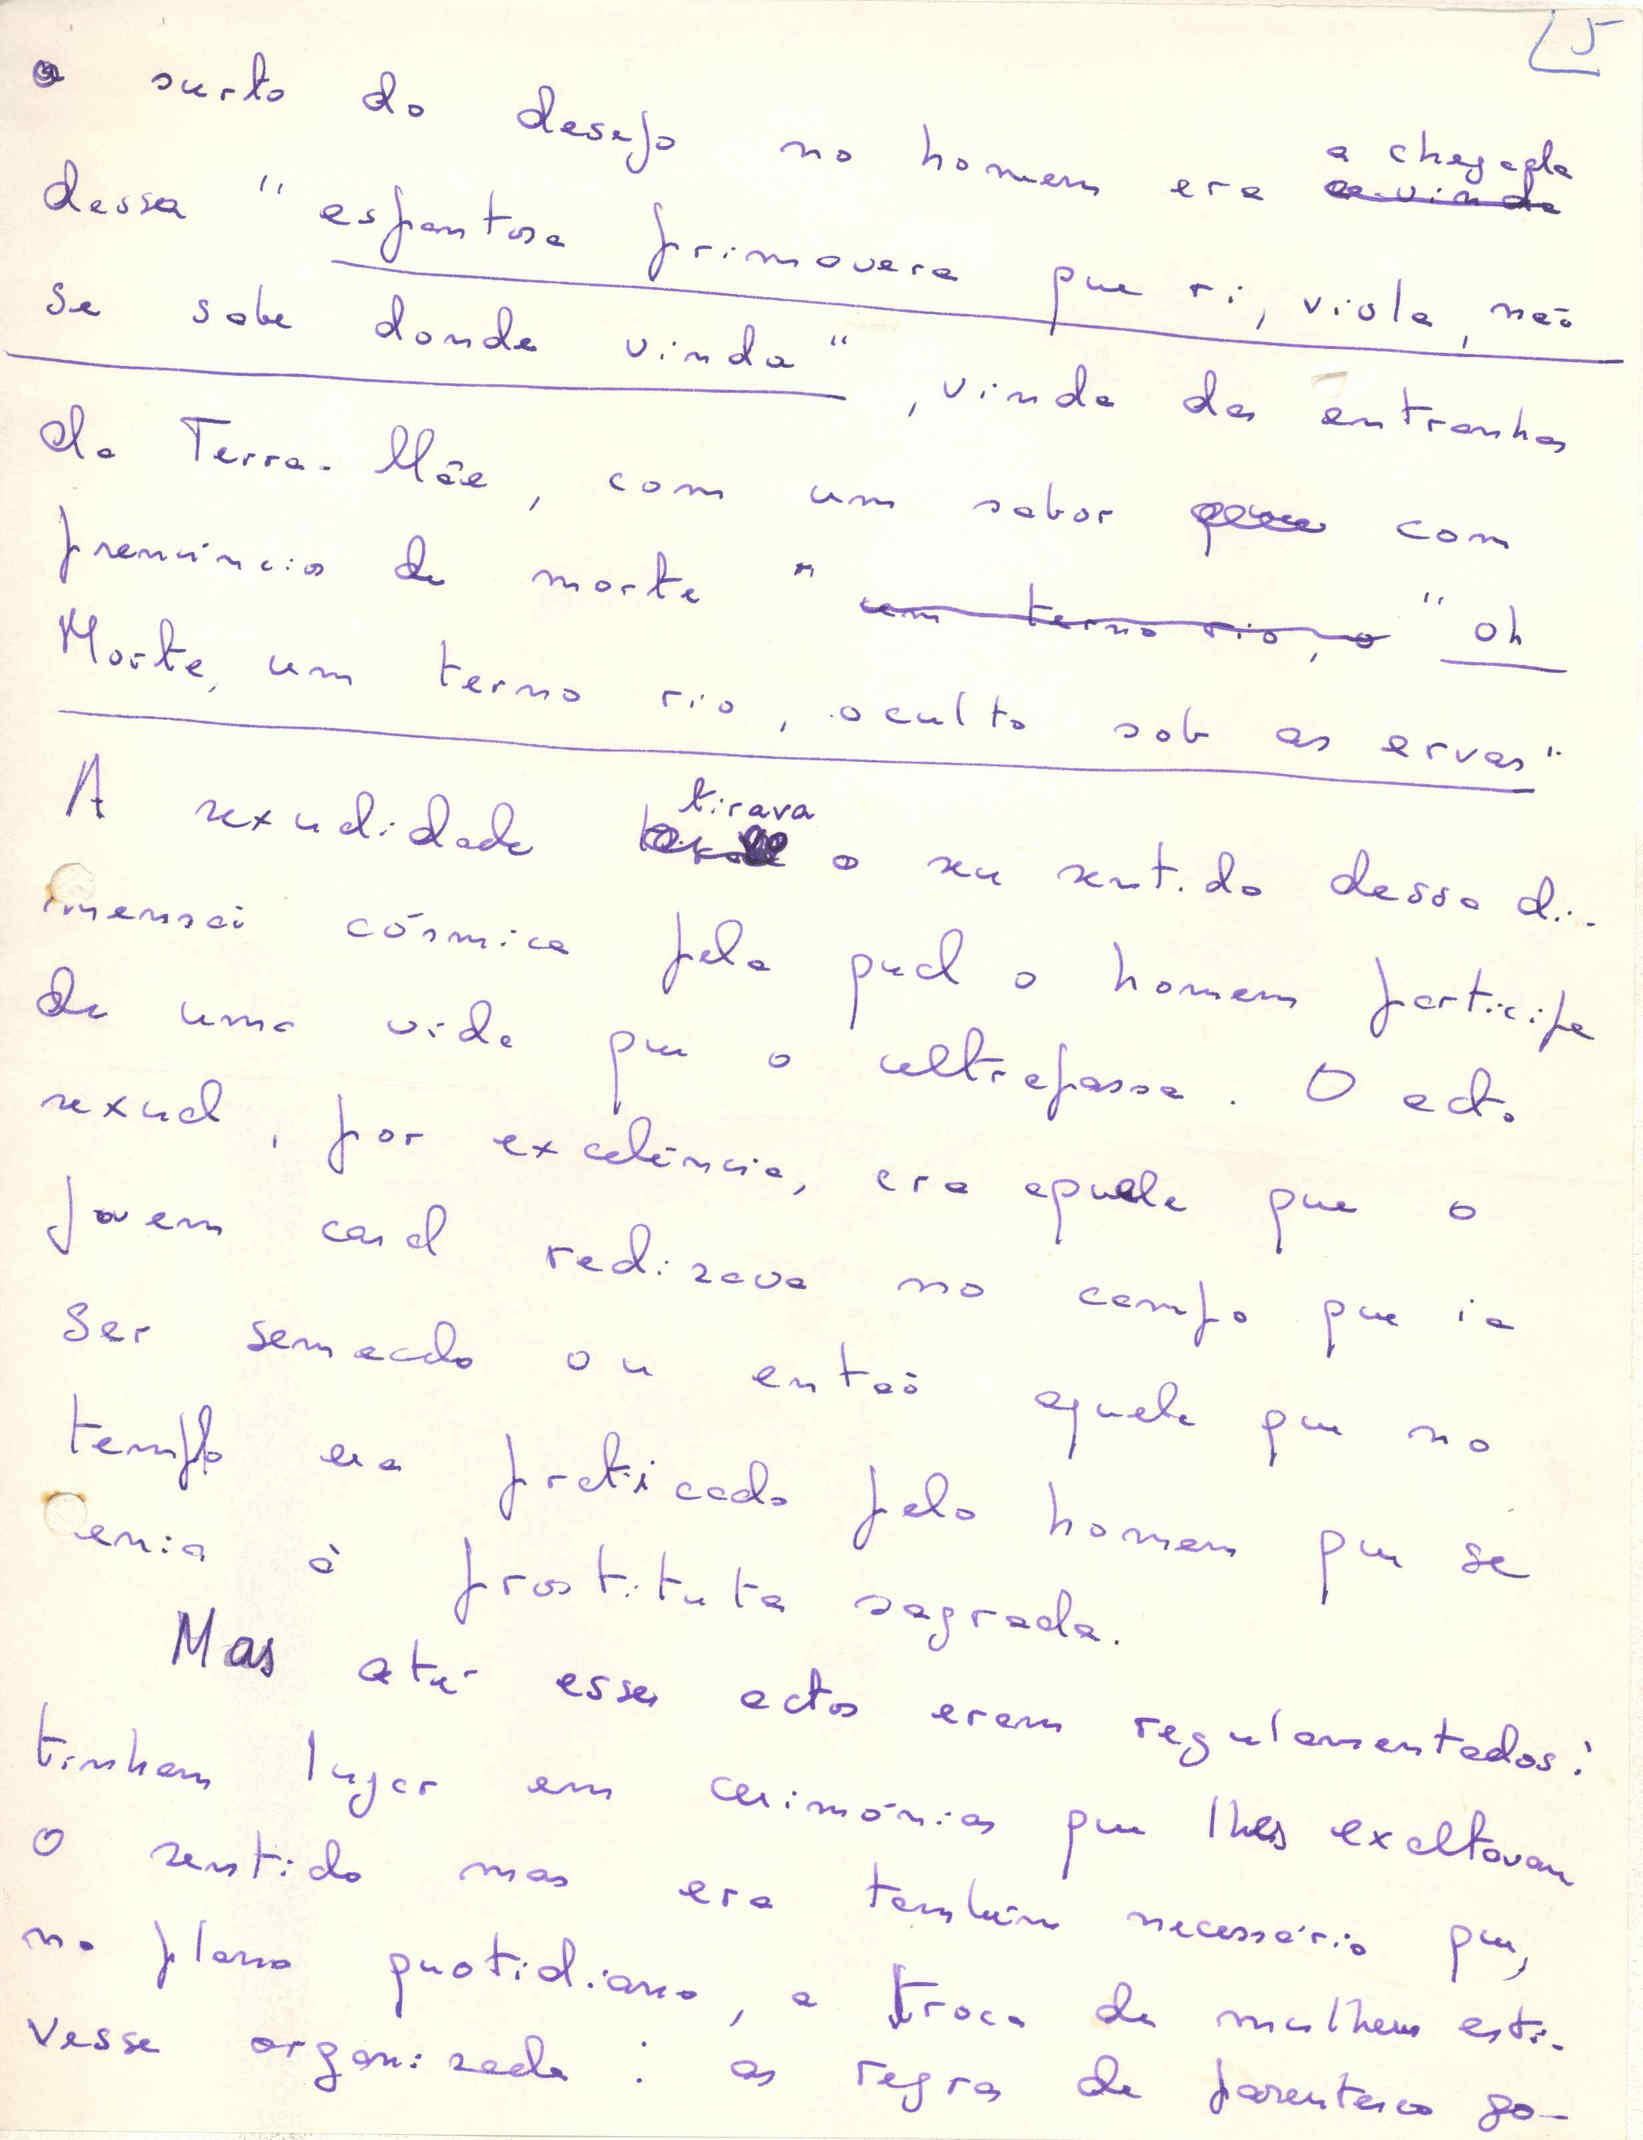 5
o surto do desejo no homem era a chegada
dessa "espantosa primavera que ri, viola, não
se sabe donde vinda", vinda das entranhas
da Terra-Mãe, com um sabor com
prenúncios de morte " um terno rio, o "Oh
Morte, um terno rio, oculto sob as ervas"
A sexualidade tirava o seu sentido dessa di-
mensão cósmica pela qual o homem participa
de uma vida que o ultrapassa. O acto
sexual, por excelência, era aquele que o
jovem casal realizava no campo que ia
ser semeado ou então aquele que no
templo era praticado pelo homem que se
unia à prostituta sagrada.
Mas até esses actos eram regulamentados:
tinham lugar em cerimónias que lhes exaltavam
o sentido mas era também necessário que,
no plano quotidiano, a troca de mulheres esti-
vesse organizada: as regras de parentesco go-